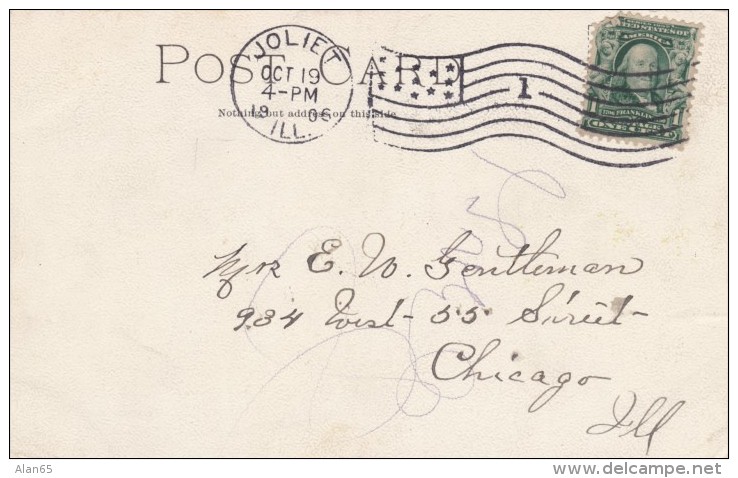 POST CARD
JOLIET
OCT 19
4-PM
19 06
ILL.
1
Nothing but address on this side
UNITED STATES OF
AMERICA
FRANKLIN
1 1
POSTAGE
ONE CENT
E. W. Gentleman
934 West 55 Street
Chicago
Ill
Alan65
delcampe.net